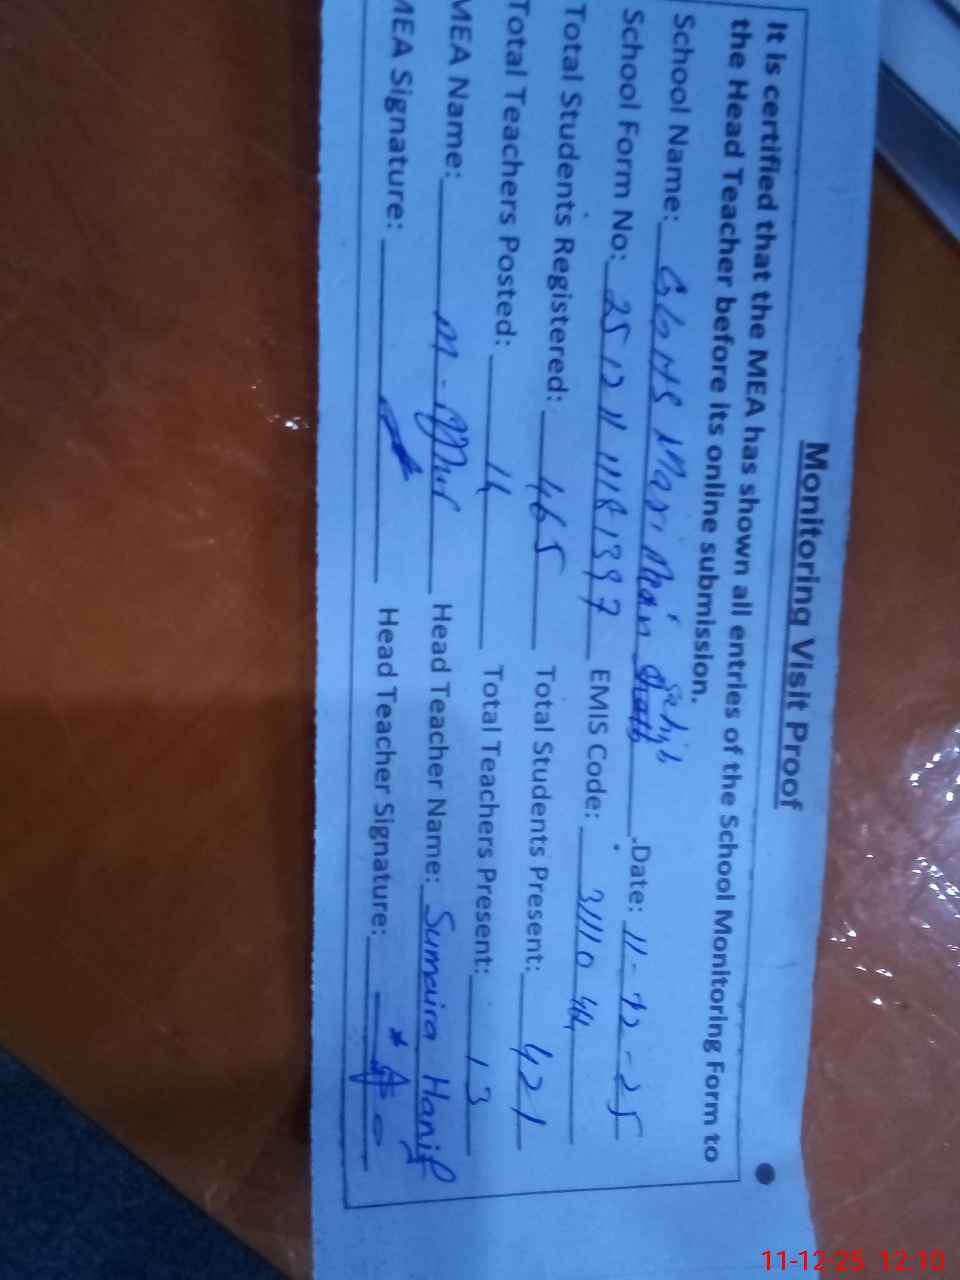 Monitoring Visit Proof
It is certified that the MEA has shown all entries of the School Monitoring Form to
the Head Teacher before its online submission.
School Name: GGHS Date: 11-12-25
School Form No: EMIS Code: 3111044
Total Students Registered: 465 Total Students Present: 421
Total Teachers Posted: 14 Total Teachers Present: 13
MEA Name: M- Head Teacher Name: Sumaira Hanif
MEA Signature: Head Teacher Signature:
11-12-25 12:10